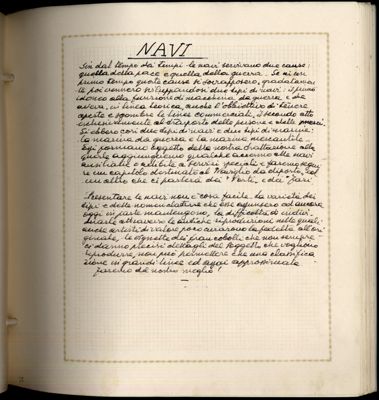 NAVI
Sin dal tempo dei tempi le navi servivano due cause:
quella della pace e quella della guerra. Se nei
primo tempo queste cause si sovrapposero, gradatamen
te poi vennero sviluppandosi due tipi di navi: il primo
idoneo alla funzione di macchina da guerra e che
aveva, in linea teorica, anche l'obbiettivo di tenere
aperte e sgombre le linee commerciali, il secondo atto
esclusivamente al trasporto delle persone e delle merci.
Si ebbero così due tipi di navi e due tipi di marine:
la marina da guerra e la marina mercantile.
Esse formano oggetto della nostra trattazione alla
quale aggiungeremo qualche accenno alle navi
ausiliarie e adibite a servizi speciali e faremo segui
re un capitolo destinato al Naviglio da diporto, ed
un altro che ci parlerà dei "Porti" e dei "Fari"
Presentare le navi non è cosa facile. La varietà dei
tipi e delle nomenclature che si seguirono ed ancora
oggi in parte mantengono, la difficoltà di
attraverso le artistiche riproduzioni nelle quali
anche artisti di valore poco curarono la fedeltà all'ori
ginale, le vignette dei francobolli che non sempre
ci danno precisi dettagli del soggetto che vogliono
riprodurre, non può permettere che una classifica
zione in grandi linee ed assai approssimata.
Faremo del nostro meglio!